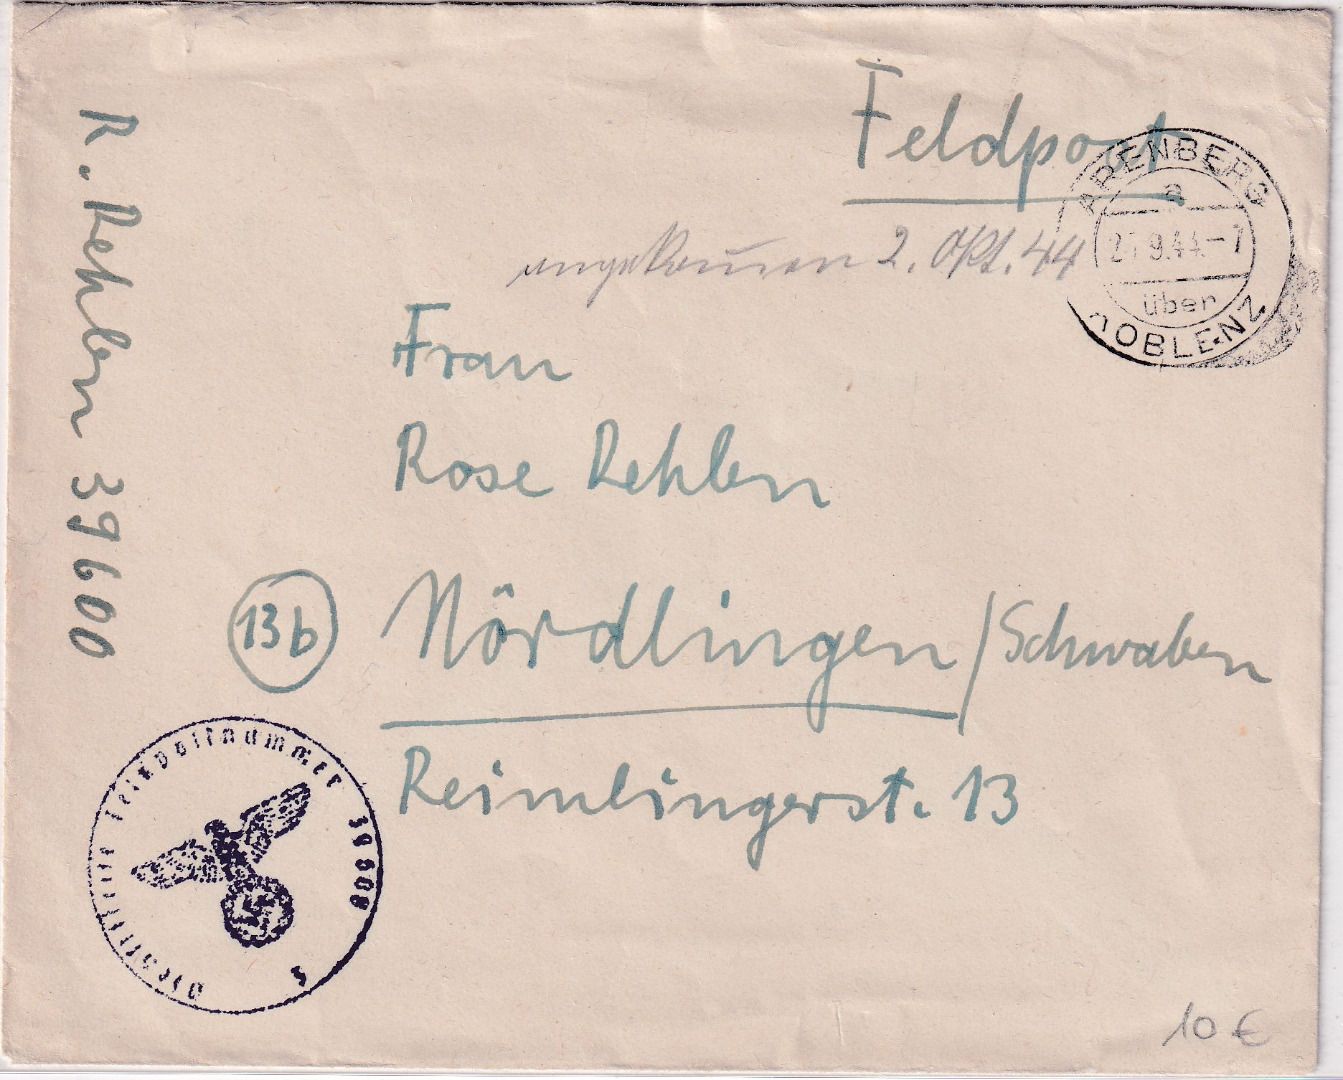 Feldpost
ARENBERG
a
9.44.-7
über
KOBLENZ
angekommen 2. Okt. 44
R. Rehlen 39600
Frau
Rose Rehlen
13b Nördlingen/Schwaben
Reimlingerst. 13
Dienststelle Feldpostnummer 39600
10 €